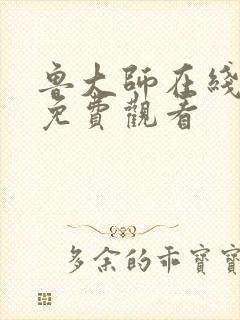 魯大師在綫
免費觀看
多余的乖寶寶